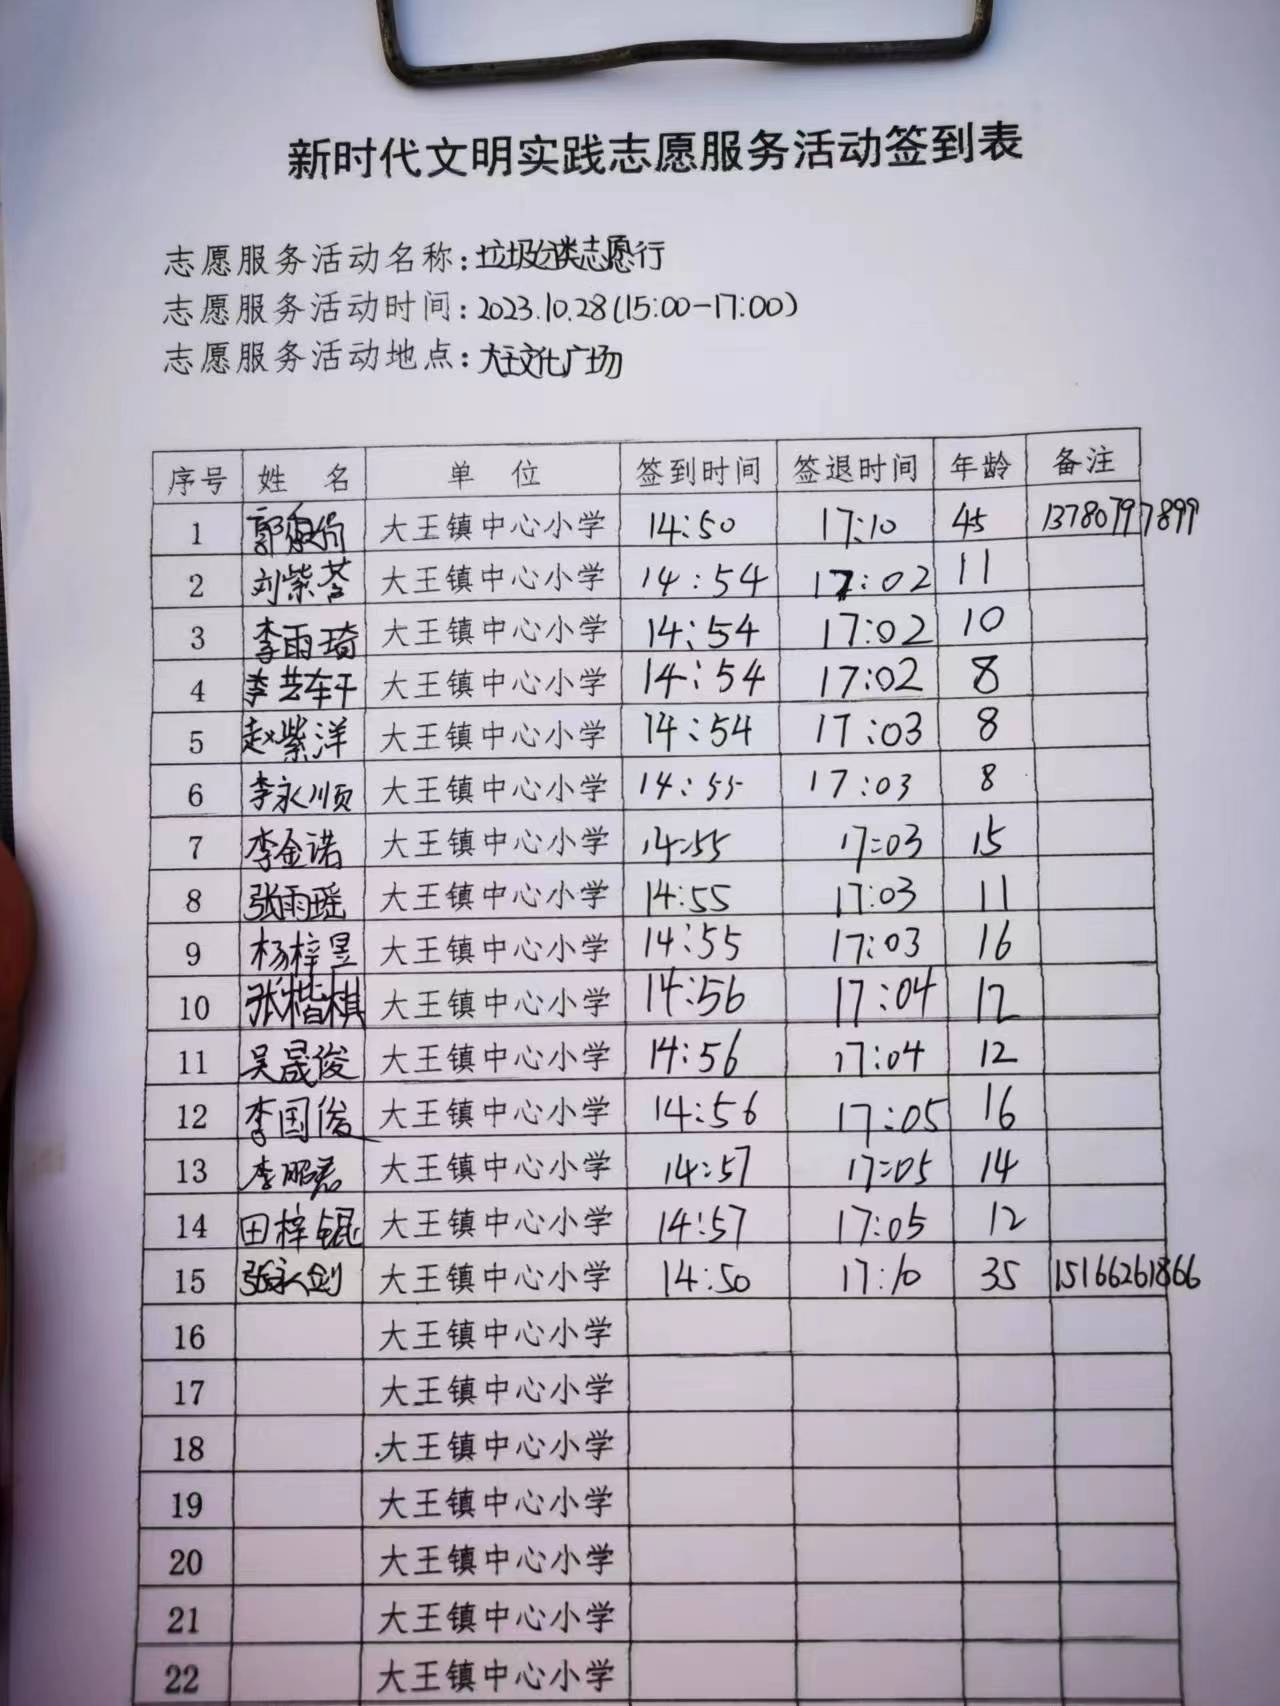 新时代文明实践志愿服务活动签到表
志愿服务活动名称:垃圾分类志愿行
志愿服务活动时间:2023.10.28(15:00-17:00)
志愿服务活动地点:大王文化广场
序号 姓 名 单 位 签到时间 签退时间 年龄 备注
1 郭 大王镇中心小学 14:50 17:10 45 13780797899
2 刘紫荅 大王镇中心小学 14:54 17:02 11
3 李雨琦 大王镇中心小学 14:54 17:02 10
4 李芸轩 大王镇中心小学 14:54 17:02 8
5 赵紫洋 大王镇中心小学 14:54 17:03 8
6 李永顺 大王镇中心小学 14:55 17:03 8
7 李金诺 大王镇中心小学 14:55 17:03 15
8 张雨瑶 大王镇中心小学 14:55 17:03 11
9 杨梓昱 大王镇中心小学 14:55 17:03 16
10 张楷棋 大王镇中心小学 14:56 17:04 12
11 吴晟俊 大王镇中心小学 14:56 17:04 12
12 李国俊 大王镇中心小学 14:56 17:05 16
13 李昭君 大王镇中心小学 14:57 17:05 14
14 田梓锟 大王镇中心小学 14:57 17:05 12
15 张永剑 大王镇中心小学 14:50 17:10 35 15166261866
16 大王镇中心小学
17 大王镇中心小学
18 大王镇中心小学
19 大王镇中心小学
20 大王镇中心小学
21 大王镇中心小学
22 大王镇中心小学